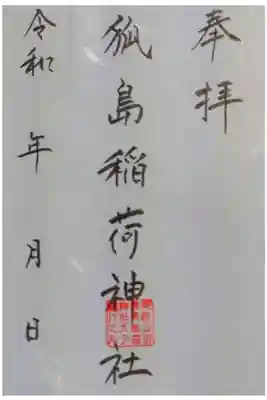 奉拝
狐島稲荷神社
令和 年 月 日